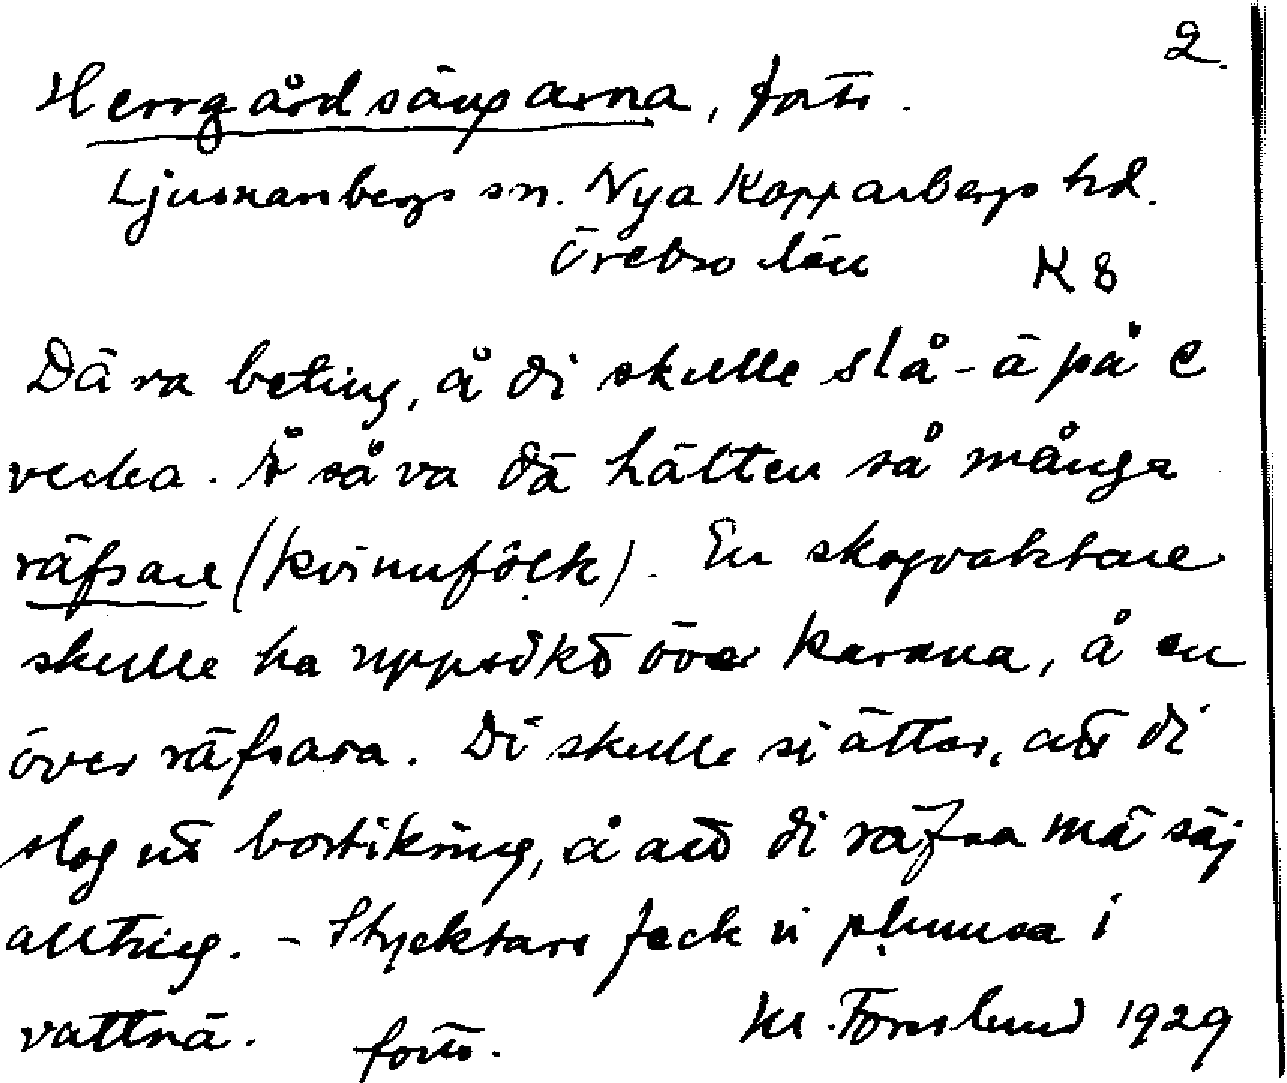 2.
Herrgårdsängarna, forts.
Ljusnarsbergs sn. Nya Kopparbergs hd.
Örebro län
K 8
Dä va beting, å di skulle slå-ä på e
vecka. Å så va dä hälften så många
räfsare (kvinnfôlk). En skogvaktare
skulle ha uppsikt över kararna, å en
över räfsara. Di skulle si ätter, att di
slog ut bortikring, å att di räfsa mä säj
allting. - Stycktare feck vi plumsa i
vattnä. forts.
Kr. Forslund 1929